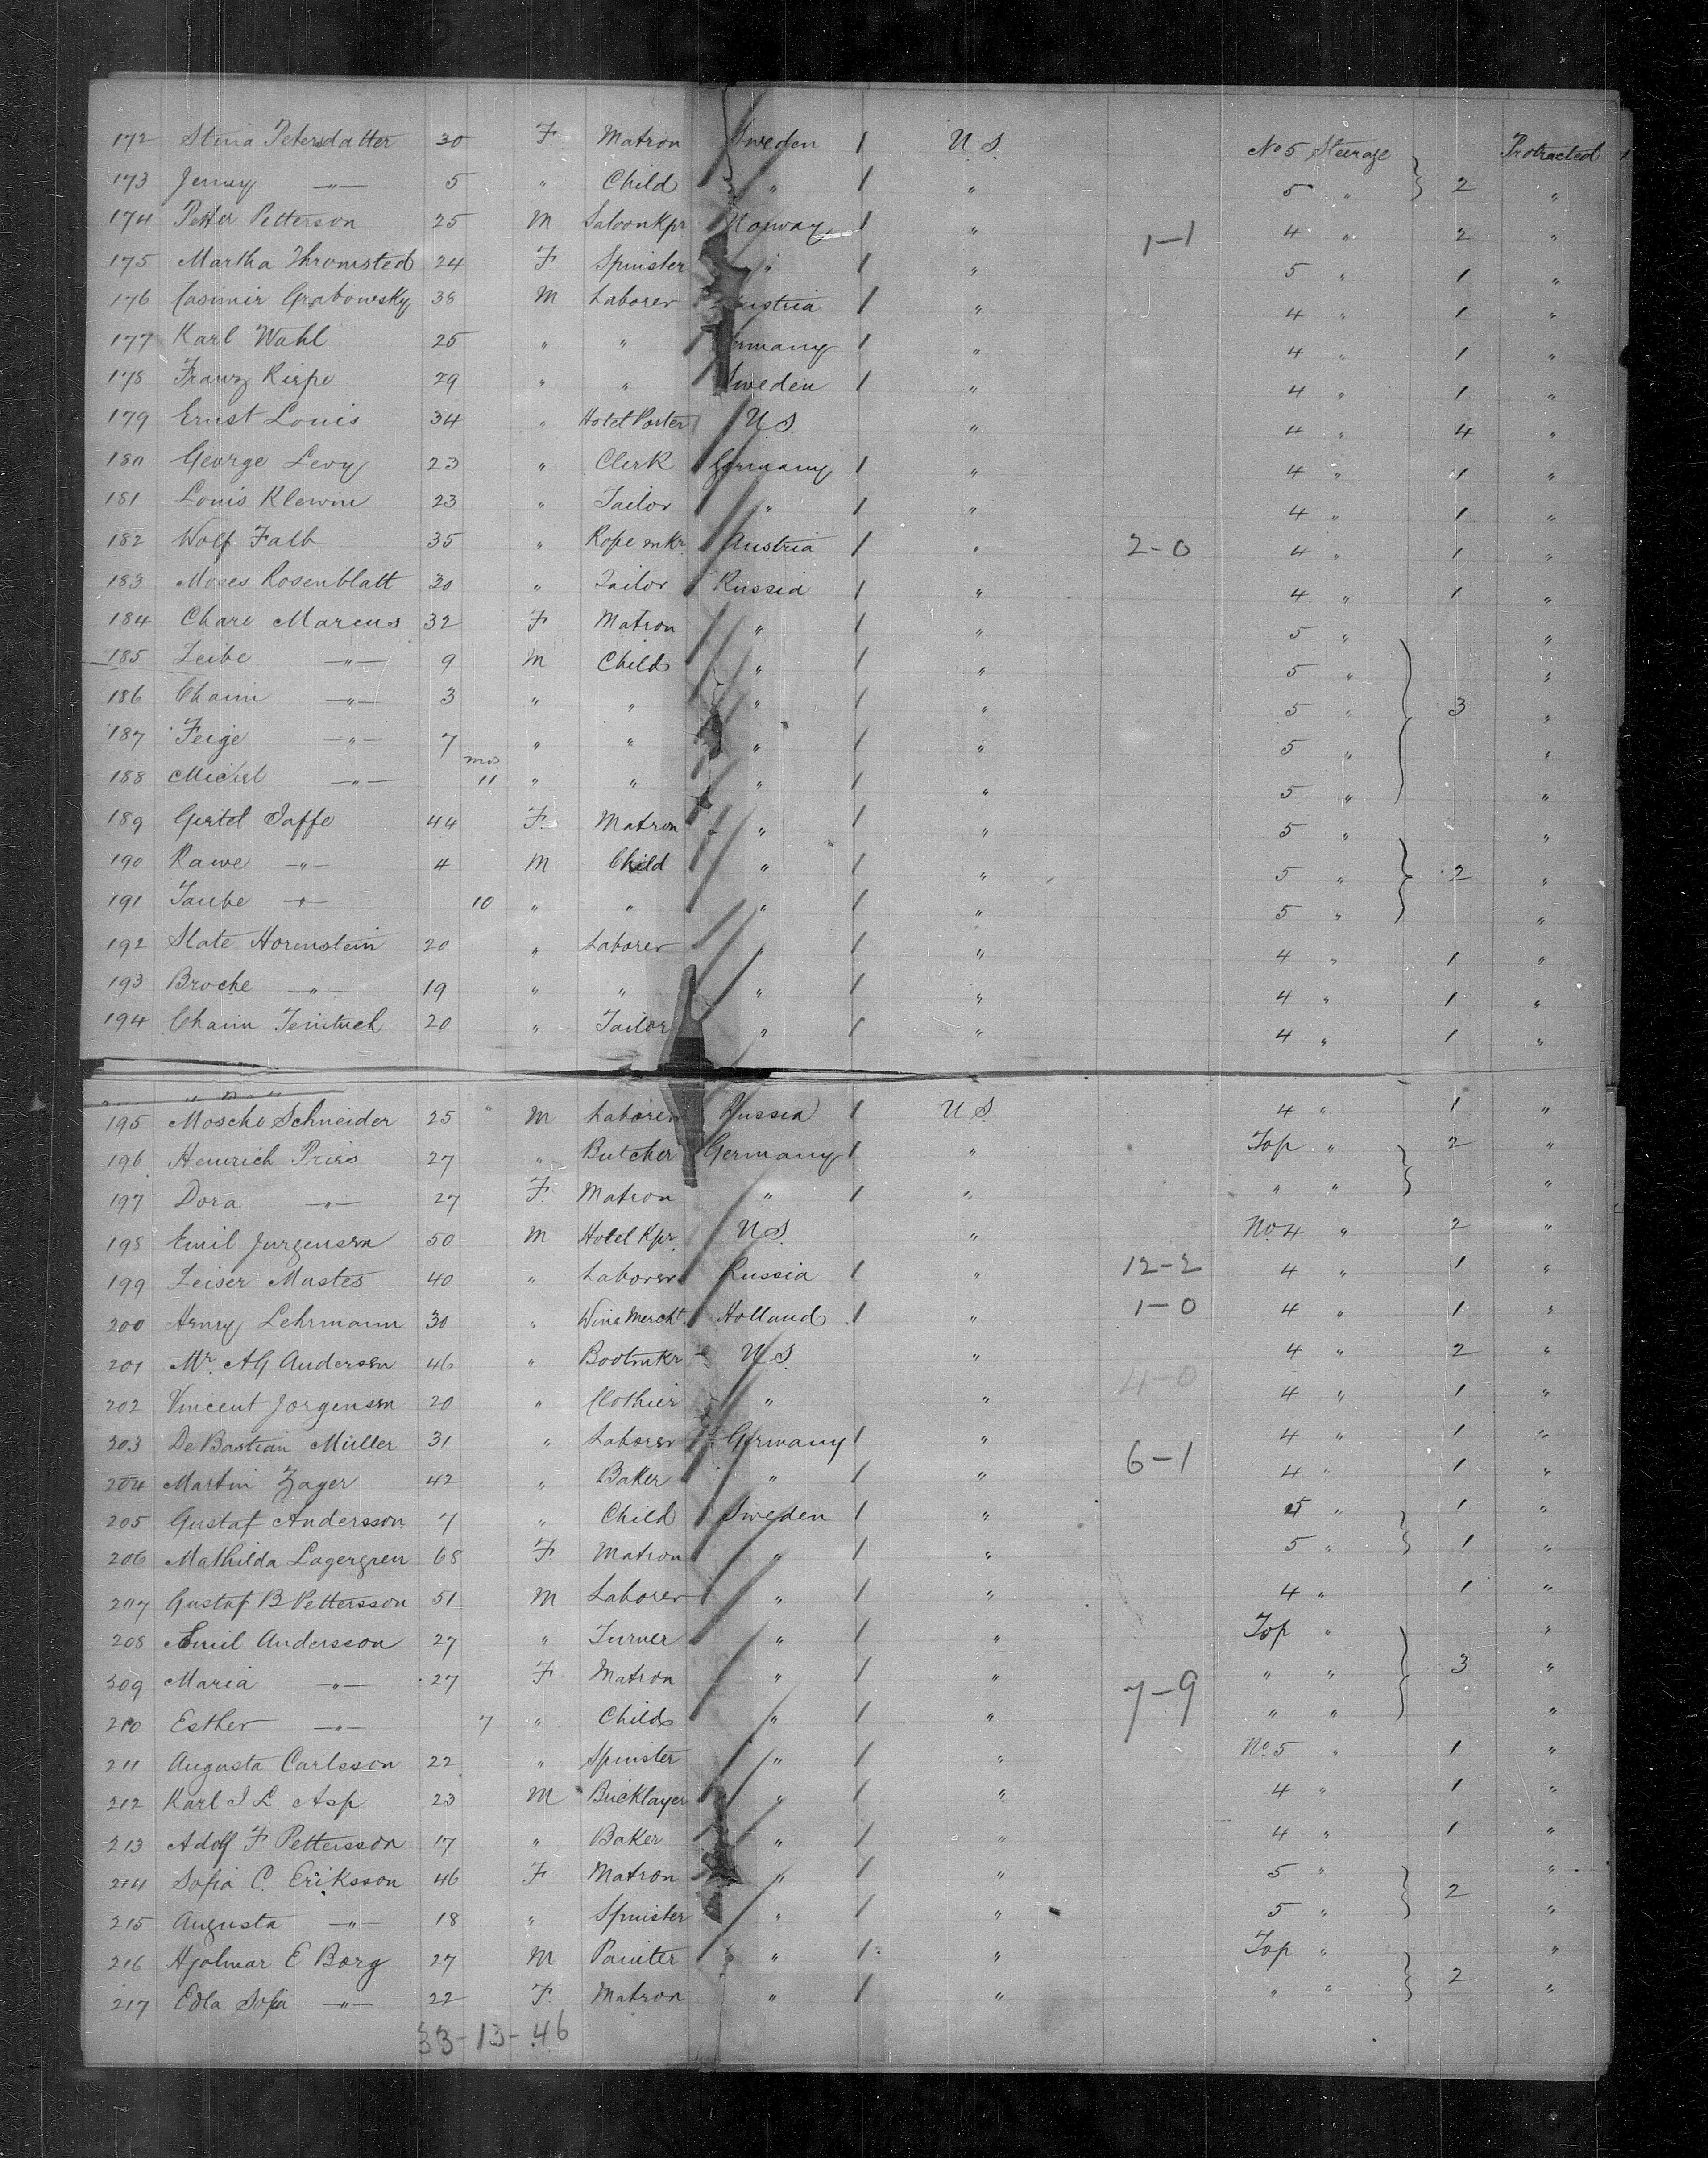 172 Stina Petersdatter 30 F. Matron Sweden 1 U.S. No 5 Steerage Protracted 1
173 Jenny —"— 5 " Child " 1 " 5 " 2 "
174 Petter Petterson 25 M Saloon Kpr Norway 1 " 1-1 4 " 2 "
175 Martha Thromsted 24 F Spinster " 1 " 5 " 1 "
176 Casimir Grabowsky 38 M Laborer Austria 1 " 4 " 1 "
177 Karl Wahl 25 " " Germany 1 " 4 " 1 "
178 Franz Rispe 29 " " Sweden 1 " 4 " 1 "
179 Ernst Louis 34 " Hotel Porter U.S. " 4 " 4 "
180 George Levy 23 " Clerk Germany 1 " 4 " 1 "
181 Louis Klewin 23 " Tailor " 1 " 4 " 1 "
182 Wolf Falb 35 " Rope mkr. Austria 1 " 2-0 4 " 1 "
183 Moses Rosenblatt 30 " Tailor Russia 1 " 4 " 1 "
184 Chare Marcus 32 F Matron " 1 " 5 " "
185 Leibe —"— 9 M Child " 1 " 5 " "
186 Chaim —"— 3 " " " 1 " 5 " 3 "
187 Feige —"— 7 " " " 1 " 5 " "
188 Michel —"— mos. 11 " " " 1 " 5 " "
189 Gertel Jaffe 44 F. Matron " 1 " 5 " "
190 Rawe —"— 4 M Child " 1 " 5 " 2 "
191 Taube —"— 10 " " " 1 " 5 " "
192 Slate Horenstein 20 " Laborer " 1 " 4 " 1 "
193 Broche —"— 19 " " " 1 " 4 " 1 "
194 Chaim 20 " Tailor " 1 " 4 " 1 "
195 Mosche Schneider 25 " M Laborer Russia 1 U.S. 4 " 1 "
196 Heinrich Priss 27 " Butcher Germany 1 " Top " 2 "
197 Dora —"— 27 F. Matron " 1 " " " "
198 Emil Jurgensen 50 M Hotel Kpr. U.S. " No. 4 " 2 "
199 Leiser Mastes 40 " Laborer Russia 1 " 12-2 4 " 1 "
200 Henry Lehrmann 30 " Wine Mercht. Holland 1 " 1-0 4 " 1 "
201 Mr. A G Andersen 46 " Bootmkr U.S. " 4 " 2 "
202 Vincent Jorgensen 20 " Clothier " " 4-0 4 " 1 "
203 De Bastian Müller 31 " Laborer Germany 1 " 4 " 1 "
204 Martin Zager 42 " Baker " 1 " 6-1 4 " 1 "
205 Gustaf Andersson 7 " Child Sweden 1 " 5 " 1 "
206 Mathilda Lagergren 68 F Matron " 1 " 5 " 1 "
207 Gustaf B Pettersson 51 M Laborer " 1 " 4 " 1 "
208 Emil Andersson 27 " Turner " 1 " Top " "
209 Maria —"— 27 F. Matron " 1 " " " 3 "
210 Esther —"— 7 " Child " 1 " 7-9 " " "
211 Augusta Carlsson 22 " Spinster " 1 " No. 5 " 1 "
212 Karl I L. Asp 23 M Bricklayer " 1 " 4 " 1 "
213 Adolf F Pettersson 17 " Baker " 1 " 4 " 1 "
214 Sofia C. Eriksson 46 F Matron " 1 " 5 " "
215 Augusta —"— 18 " Spinster " 1 " 5 " 2 "
216 Hjalmar E Borg 27 M Painter " 1 " Top " "
217 Edla Sofia —"— 22 F. Matron " 1 " " " 2 "
33-13-46